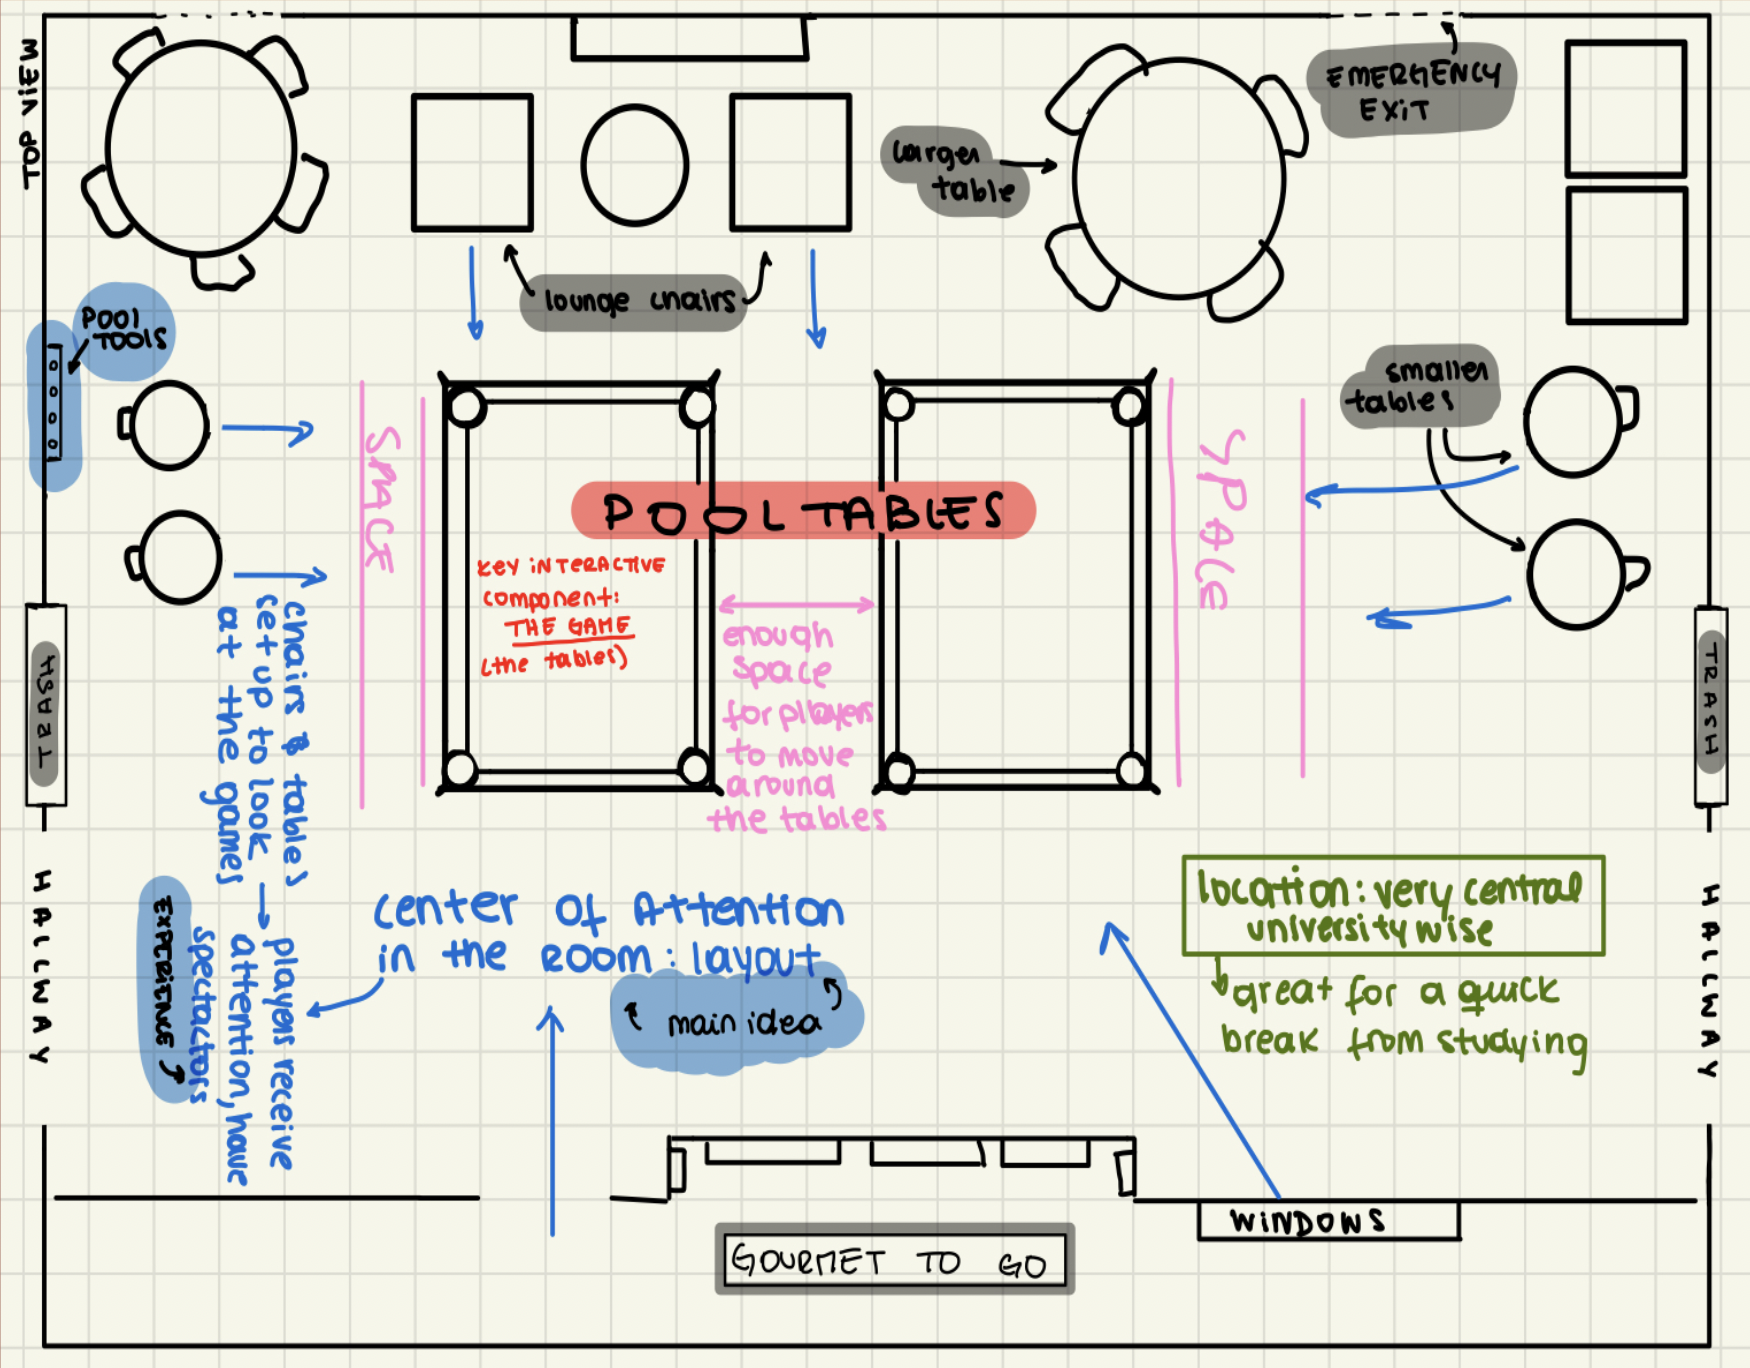 TOP VIEW
EMERGENCY
EXIT
larger
table
lounge chairs
POOL
TOOLS
smaller
tables
SPACE
SPACE
POOL TABLES
KEY INTERACTIVE
component:
THE GAME
(the tables)
enough
space
for players
to move
around
the tables
TRASH
TRASH
chairs & tables
set up to look
at the games
→ players receive
attention, have
spectactors
EXPERIENCE
HALLWAY
HALLWAY
center of Attention
in the ROOM: layout
main idea
location: very central
university wise
great for a quick
break from studying
WINDOWS
GOURMET TO GO